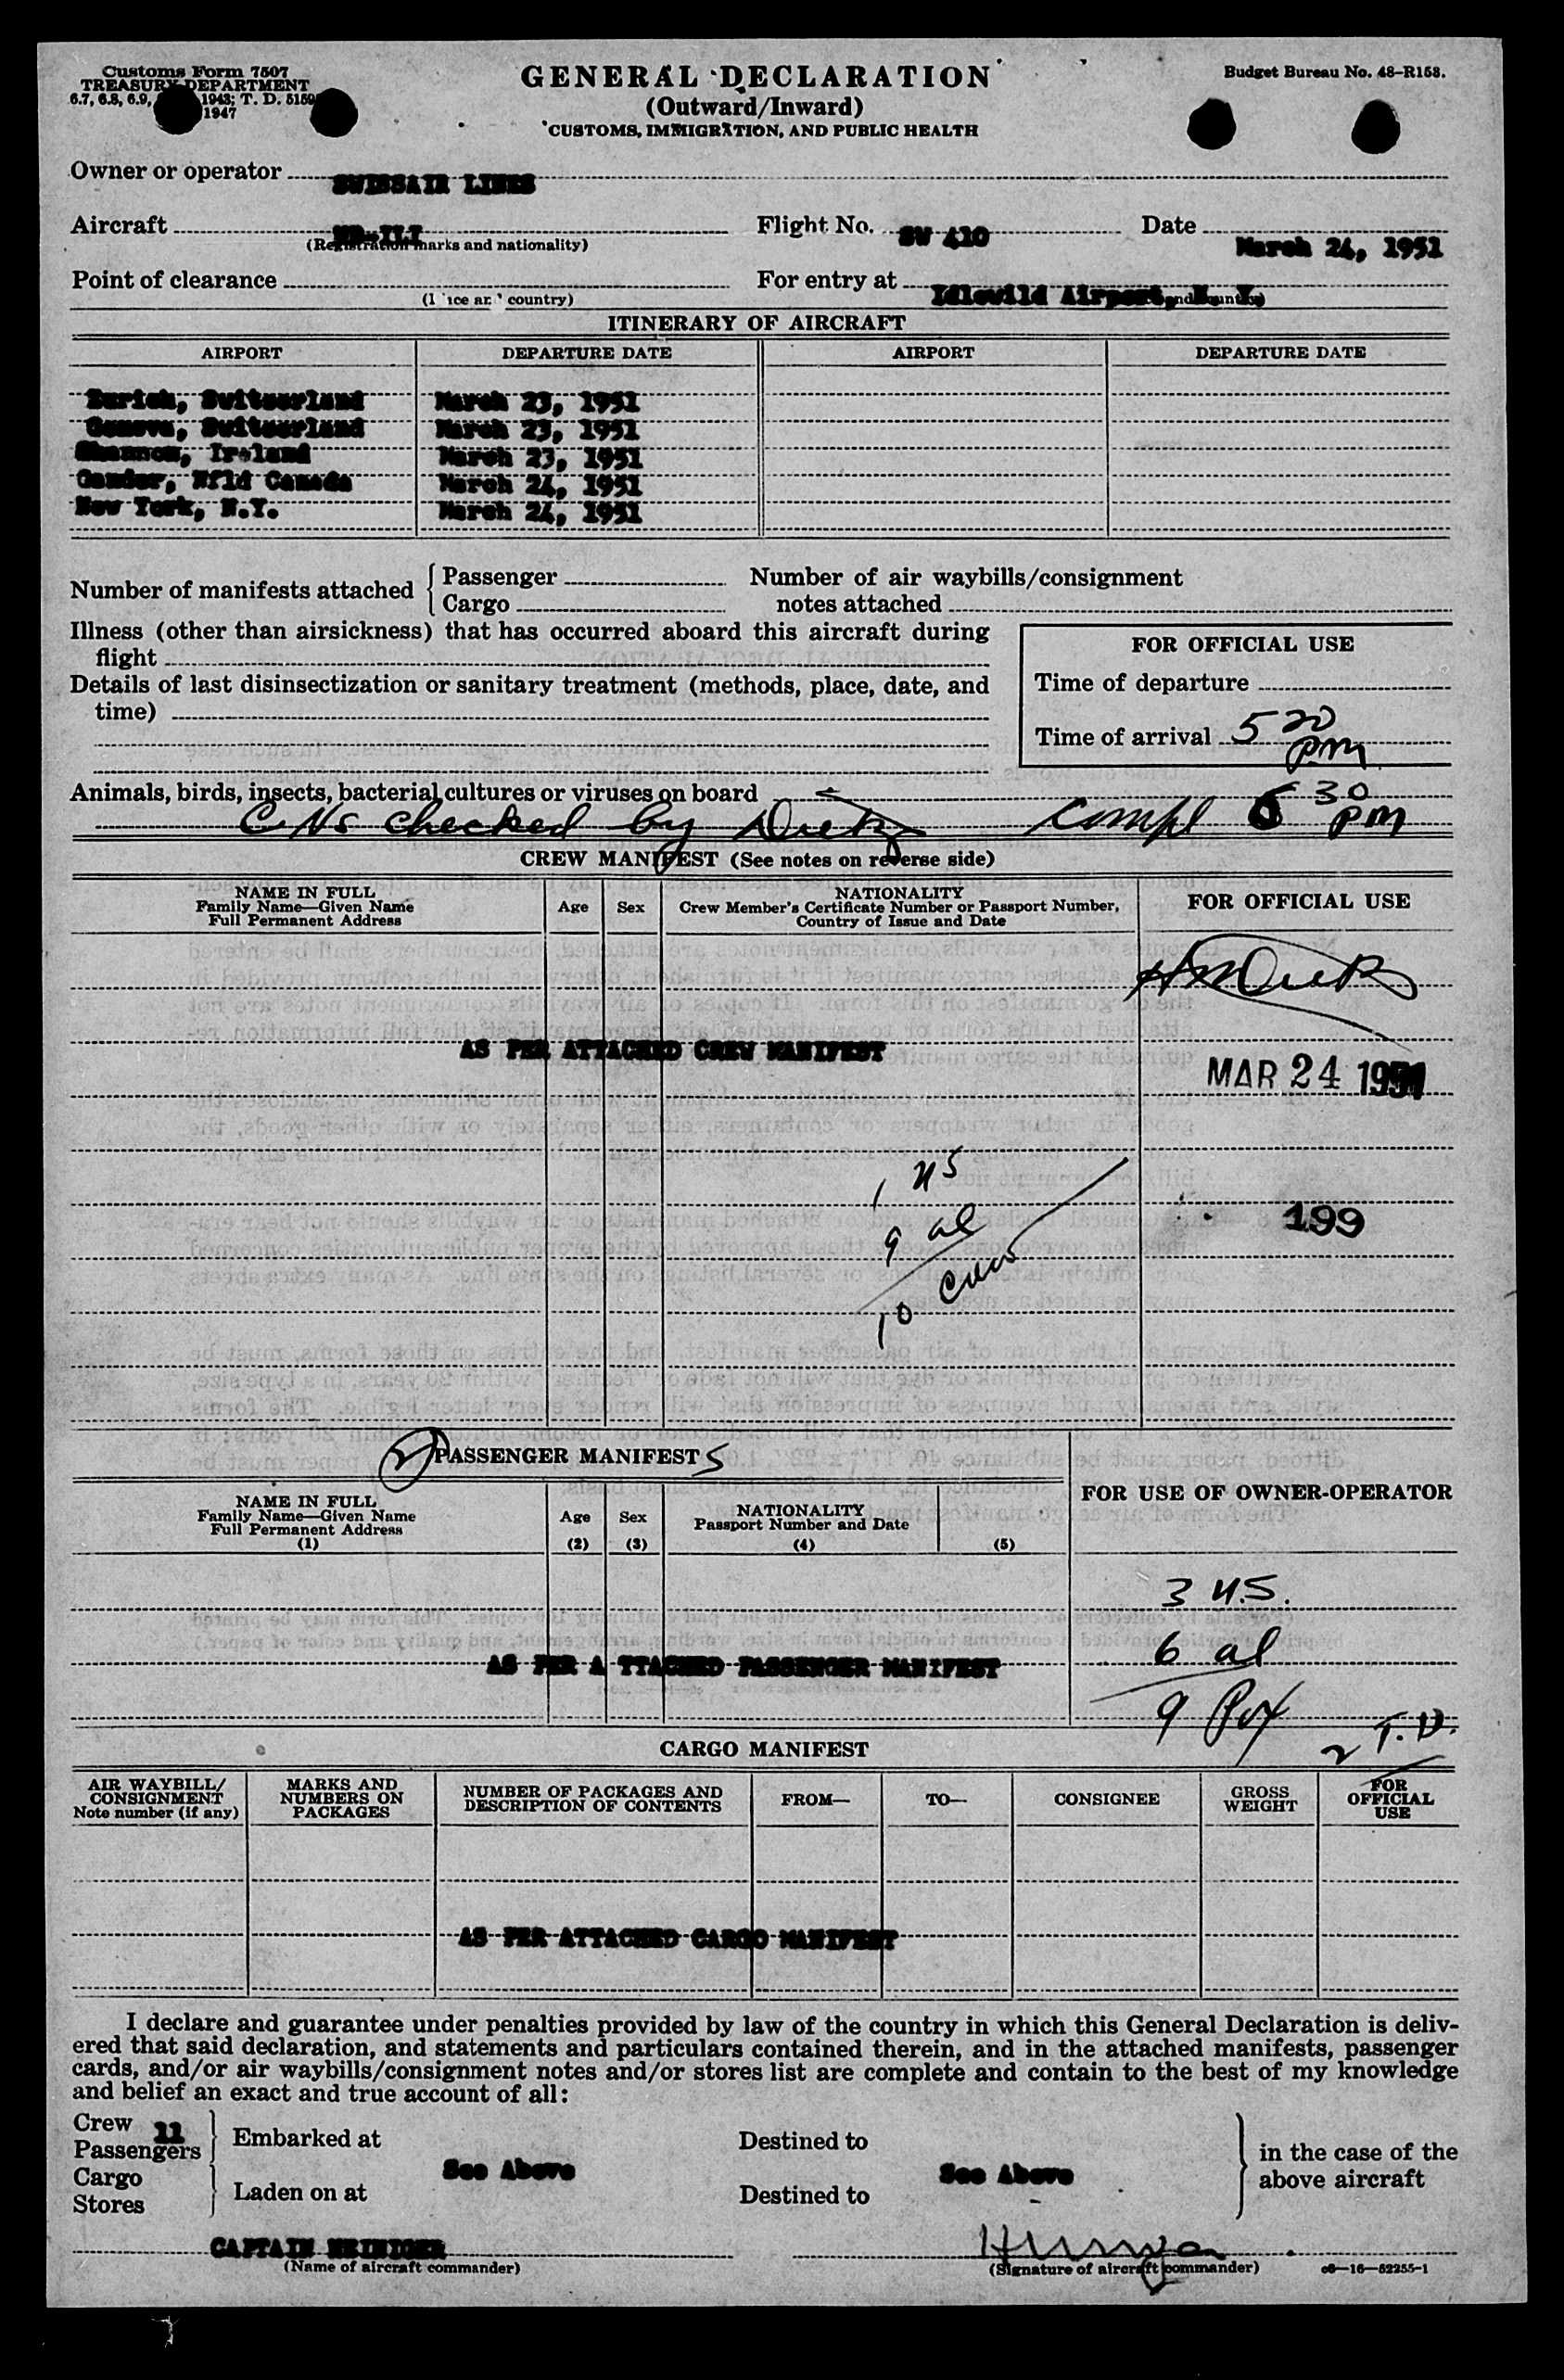 Customs Form 7507
TREASURY DEPARTMENT
6.7, 6.8, 6.9, 1943; T. D.
1947
GENERAL DECLARATION
(Outward/Inward)
CUSTOMS, IMMIGRATION, AND PUBLIC HEALTH
Budget Bureau No. 48-R158.
Owner or operator SWISSAIR LINES
Aircraft
(Registration marks and nationality)
Flight No. SW 410
Date March 24, 1951
Point of clearance
country)
For entry at Idlewild Airport, N. Y.
ITINERARY OF AIRCRAFT
AIRPORT DEPARTURE DATE AIRPORT DEPARTURE DATE
Zurich, Switzerland March 23, 1951
Geneva, Switzerland March 23, 1951
Shannon, Ireland March 23, 1951
Gander, Nfld Canada March 24, 1951
New York, N.Y. March 24, 1951
Number of manifests attached
Passenger
Cargo
Number of air waybills/consignment
notes attached
Illness (other than airsickness) that has occurred aboard this aircraft during
flight
Details of last disinsectization or sanitary treatment (methods, place, date, and
time)
FOR OFFICIAL USE
Time of departure
Time of arrival 5 20
pm
Animals, birds, insects, bacterial cultures or viruses on board
checked by compl 6 30
pm
CREW MANIFEST (See notes on reverse side)
NAME IN FULL
Family Name—Given Name
Full Permanent Address
Age
Sex
NATIONALITY
Crew Member's Certificate Number or Passport Number,
Country of Issue and Date
FOR OFFICIAL USE
AS PER ATTACHED CREW MANIFEST
MAR 24 1951
1 US
9 al
10 Crew
199
2 PASSENGER MANIFESTS
NAME IN FULL
Family Name—Given Name
Full Permanent Address
(1)
Age
(2)
Sex
(3)
NATIONALITY
Passport Number and Date
(4)
(5)
FOR USE OF OWNER-OPERATOR
3 U.S.
6 al
AS PER A TTACHED PASSENGER MANIFEST
9
2 T.D.
CARGO MANIFEST
AIR WAYBILL/
CONSIGNMENT
Note number (if any)
MARKS AND
NUMBERS ON
PACKAGES
NUMBER OF PACKAGES AND
DESCRIPTION OF CONTENTS
FROM—
TO—
CONSIGNEE
GROSS
WEIGHT
FOR
OFFICIAL
USE
AS PER ATTACHED CARGO MANIFEST
I declare and guarantee under penalties provided by law of the country in which this General Declaration is deliv-
ered that said declaration, and statements and particulars contained therein, and in the attached manifests, passenger
cards, and/or air waybills/consignment notes and/or stores list are complete and contain to the best of my knowledge
and belief an exact and true account of all:
Crew 11
Passengers
Cargo
Stores
Embarked at
Laden on at
See Above
Destined to
Destined to
See Above
in the case of the
above aircraft
CAPTAIN
(Name of aircraft commander)
(Signature of aircraft commander)
16—52255-1